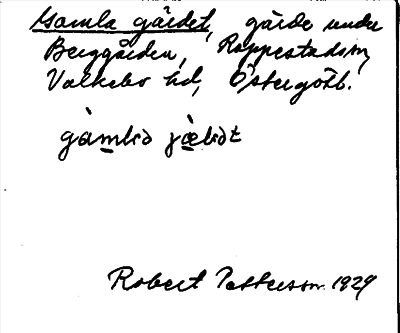 Gamla gärdet, gärde under
Berggården, Rappestads sn,
Valkebo hd, Östergötl.
gàmlɩə jæ̀lɩət
Robert Petterson 1929